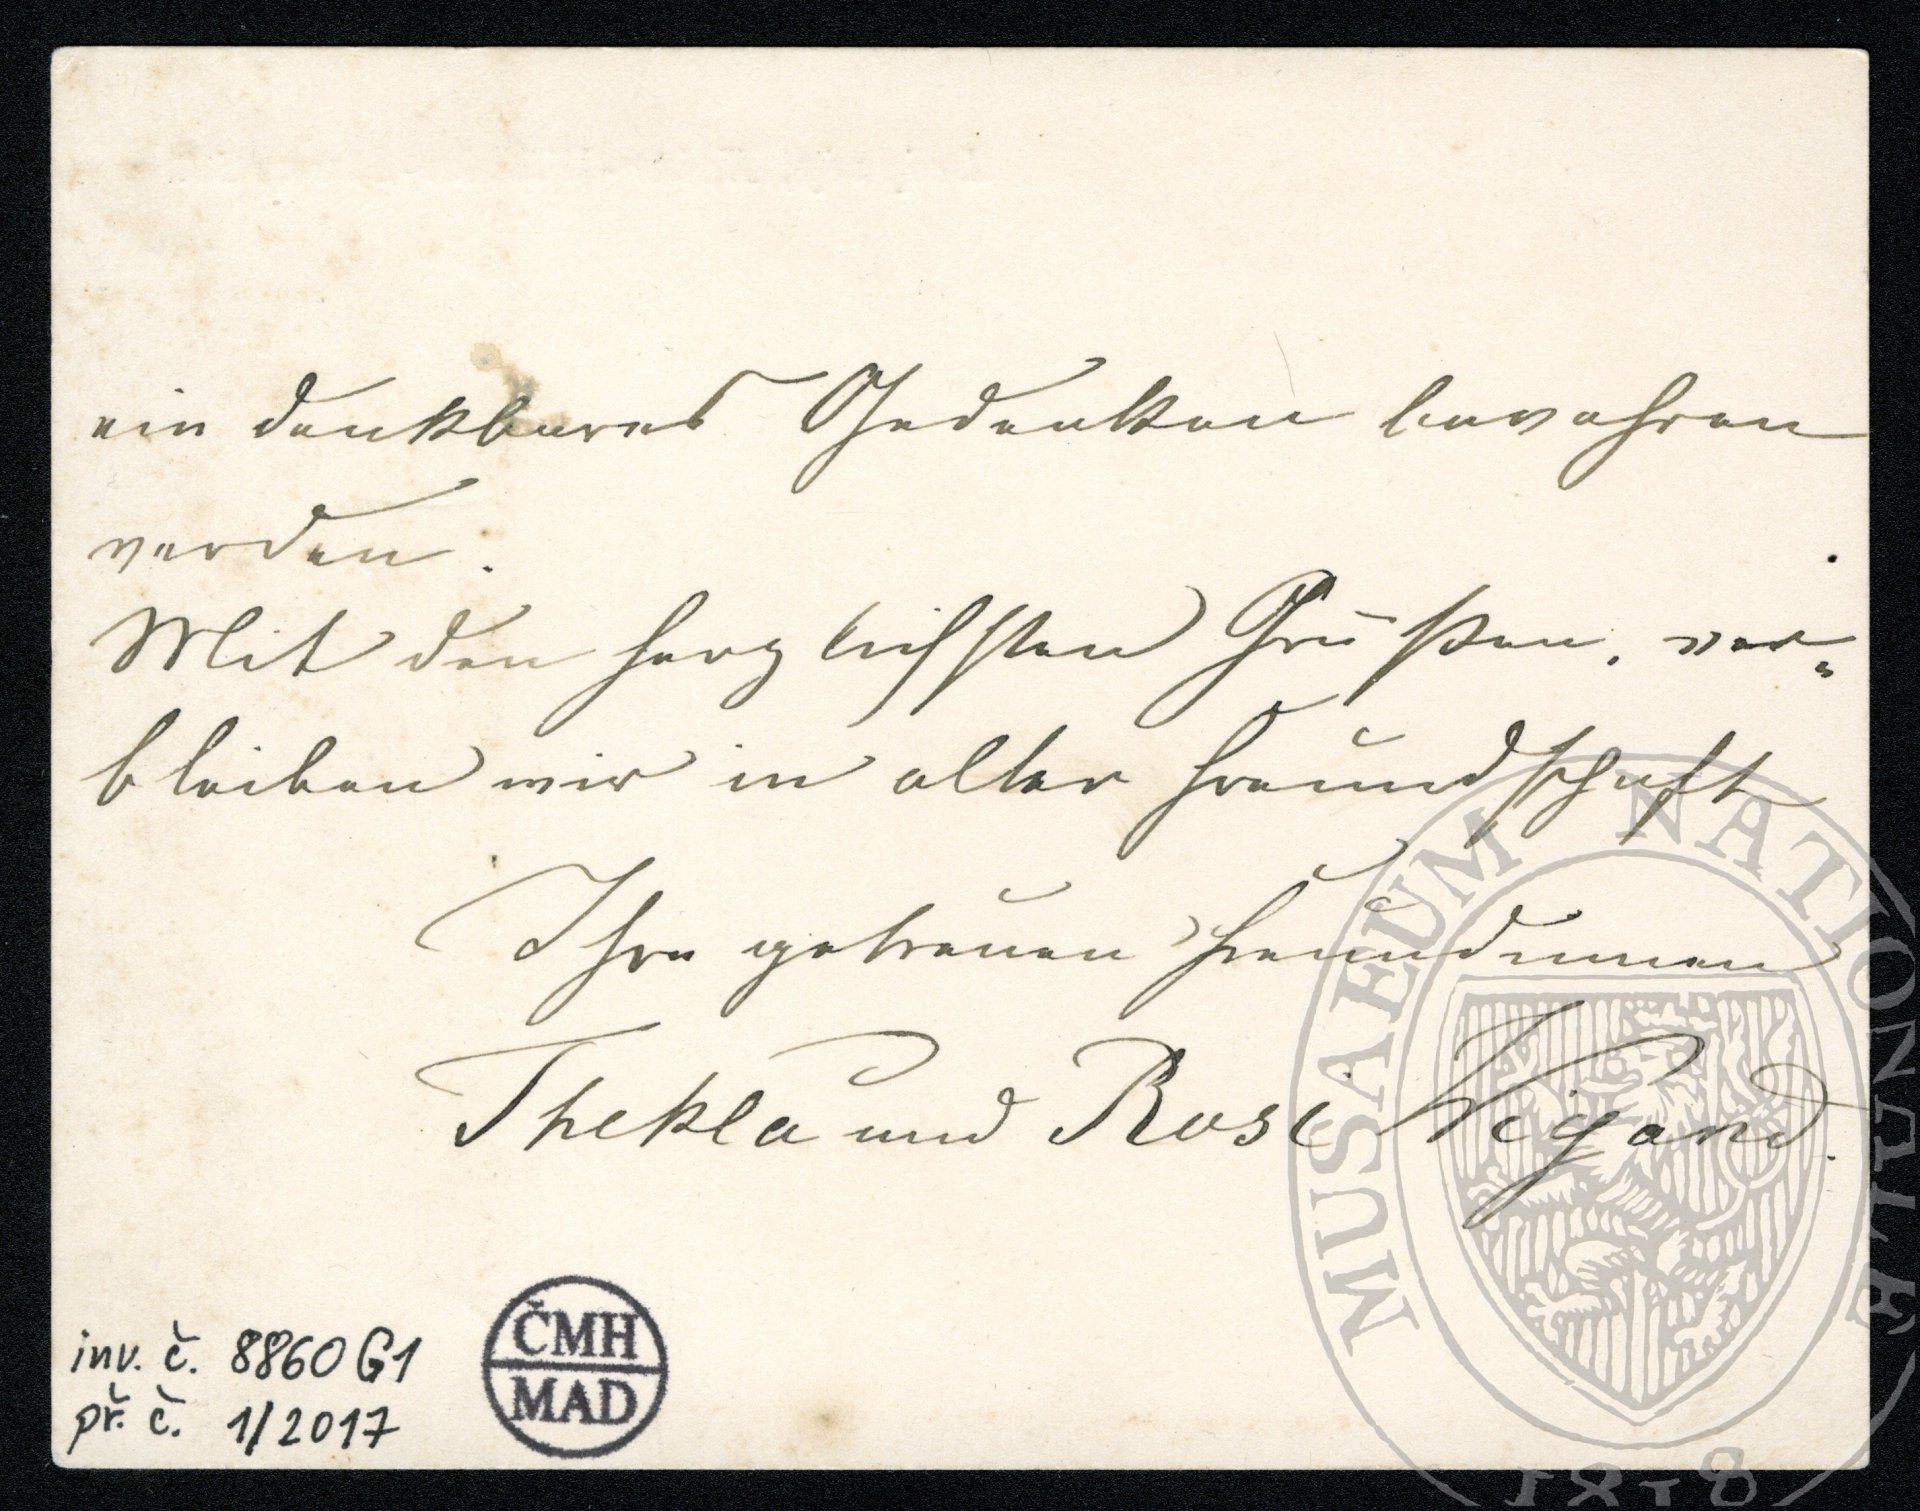 ein dankbares Gedenken bewahren
werden.
Mit den herzlichsten Grüßen, ver-
bleiben wir in alter Freundschaft
Ihre getreuen Freundinnen
Thekla und Rosi Weigand.
inv. č. 8860 G1
př. č. 1/2017
ČMH
MAD
MUSAEUM NATIONALE
1818